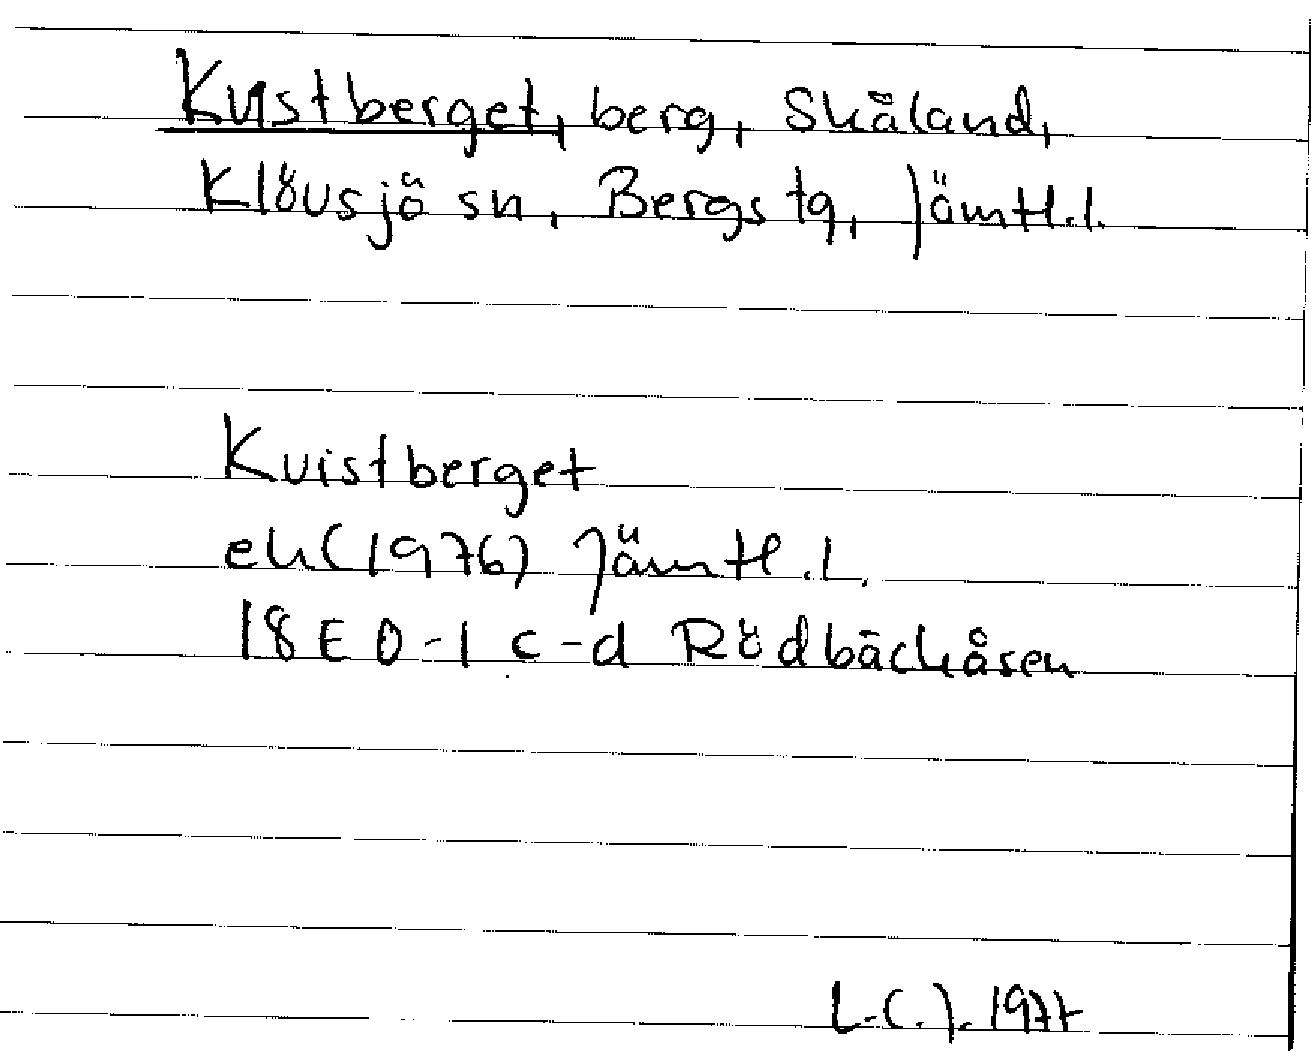 Kustberget, berg, Skåland,
Klövsjö sn, Bergs tg, Jämtl.l.
Kvistberget
ek (1976) Jämtl.l.
18E 0-1 c-d Rödbäckåsen
L.C.J. 1977